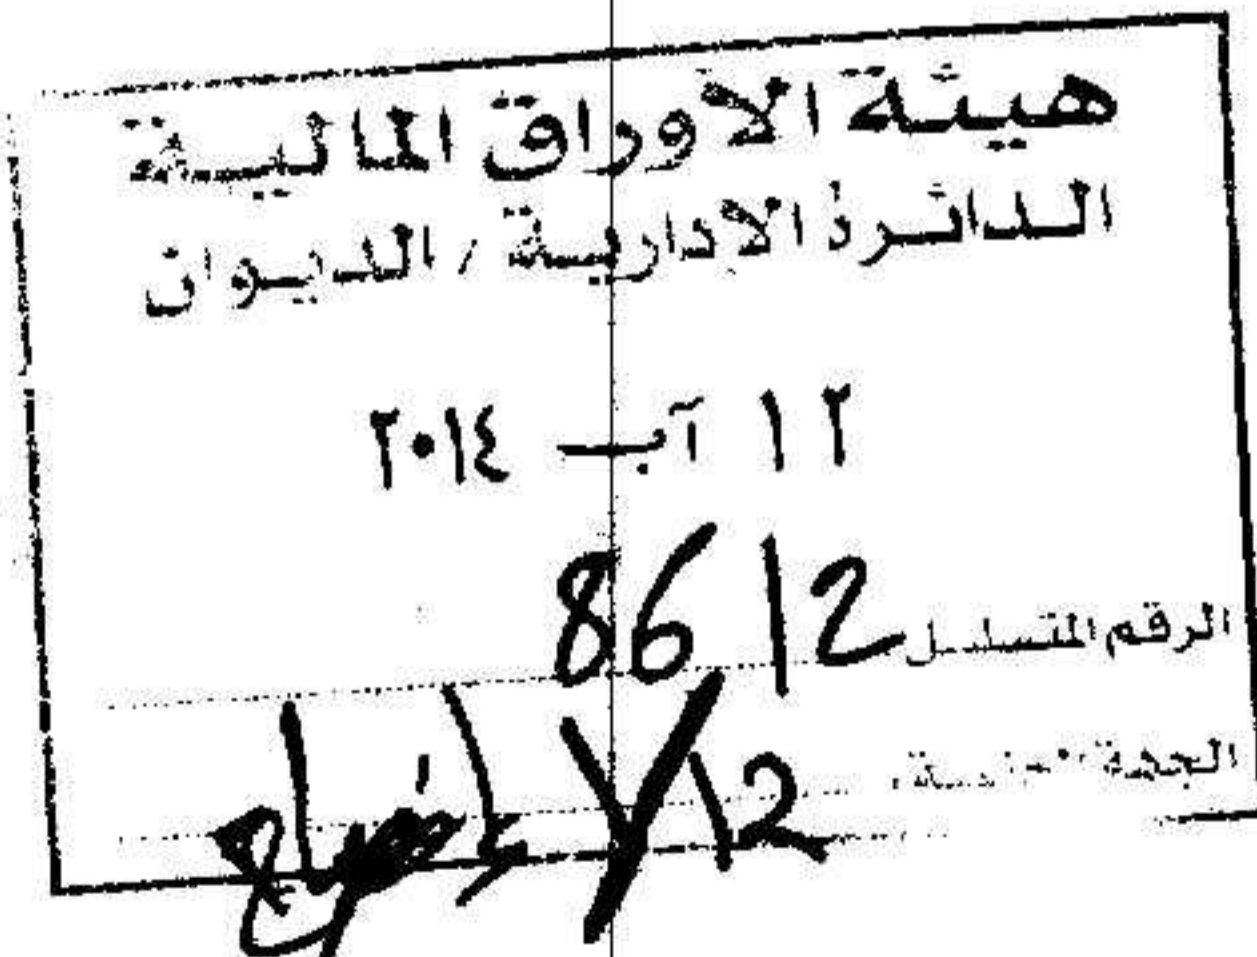 هيئة الاوراق المالية
الدائرة الادارية / الديوان
١٢ آب ٢٠١٤
الرقم المتسلسل 8612
الجهة